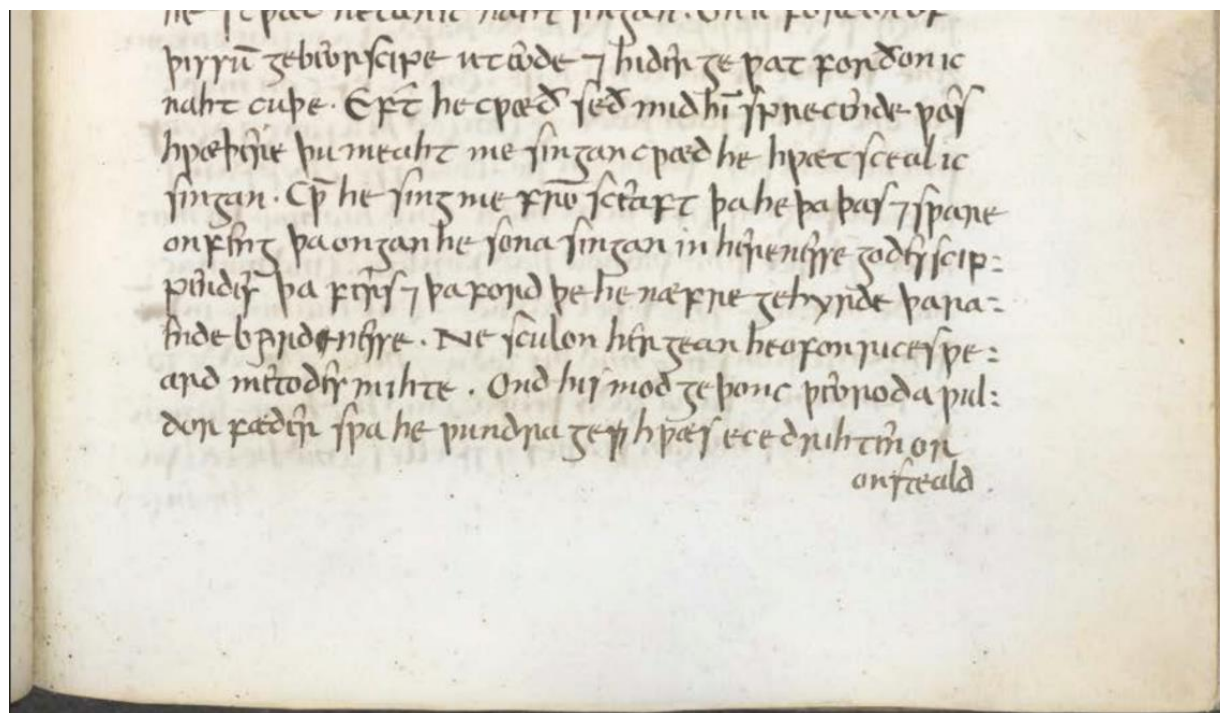 þissū gebeorscipe ut eode ⁊ hider ge ƿat forðon ic
naht cuþe. Eft he cƿæð seð mid hī sprecende ƿæs
hƿæþere þu meaht me singan cƿæð he hƿæt sceal ic
singan. Cƿ̄ he sing me frūsceaft þa he þa þas ⁊sƿare
onfeng þa ongan he sona singan in herenesse godes scip:
ƿendes þa fers ⁊ þa ford þe he næfre gehyrde þara:
ende byrdnesse. Ne sculon hergean heofon rices ƿe:
ard metodes mihte. Ond his mod geþonc ƿeoroda ƿul:
dor fæder sƿa he ƿundra gehƿæs ece drihten or
onsteald